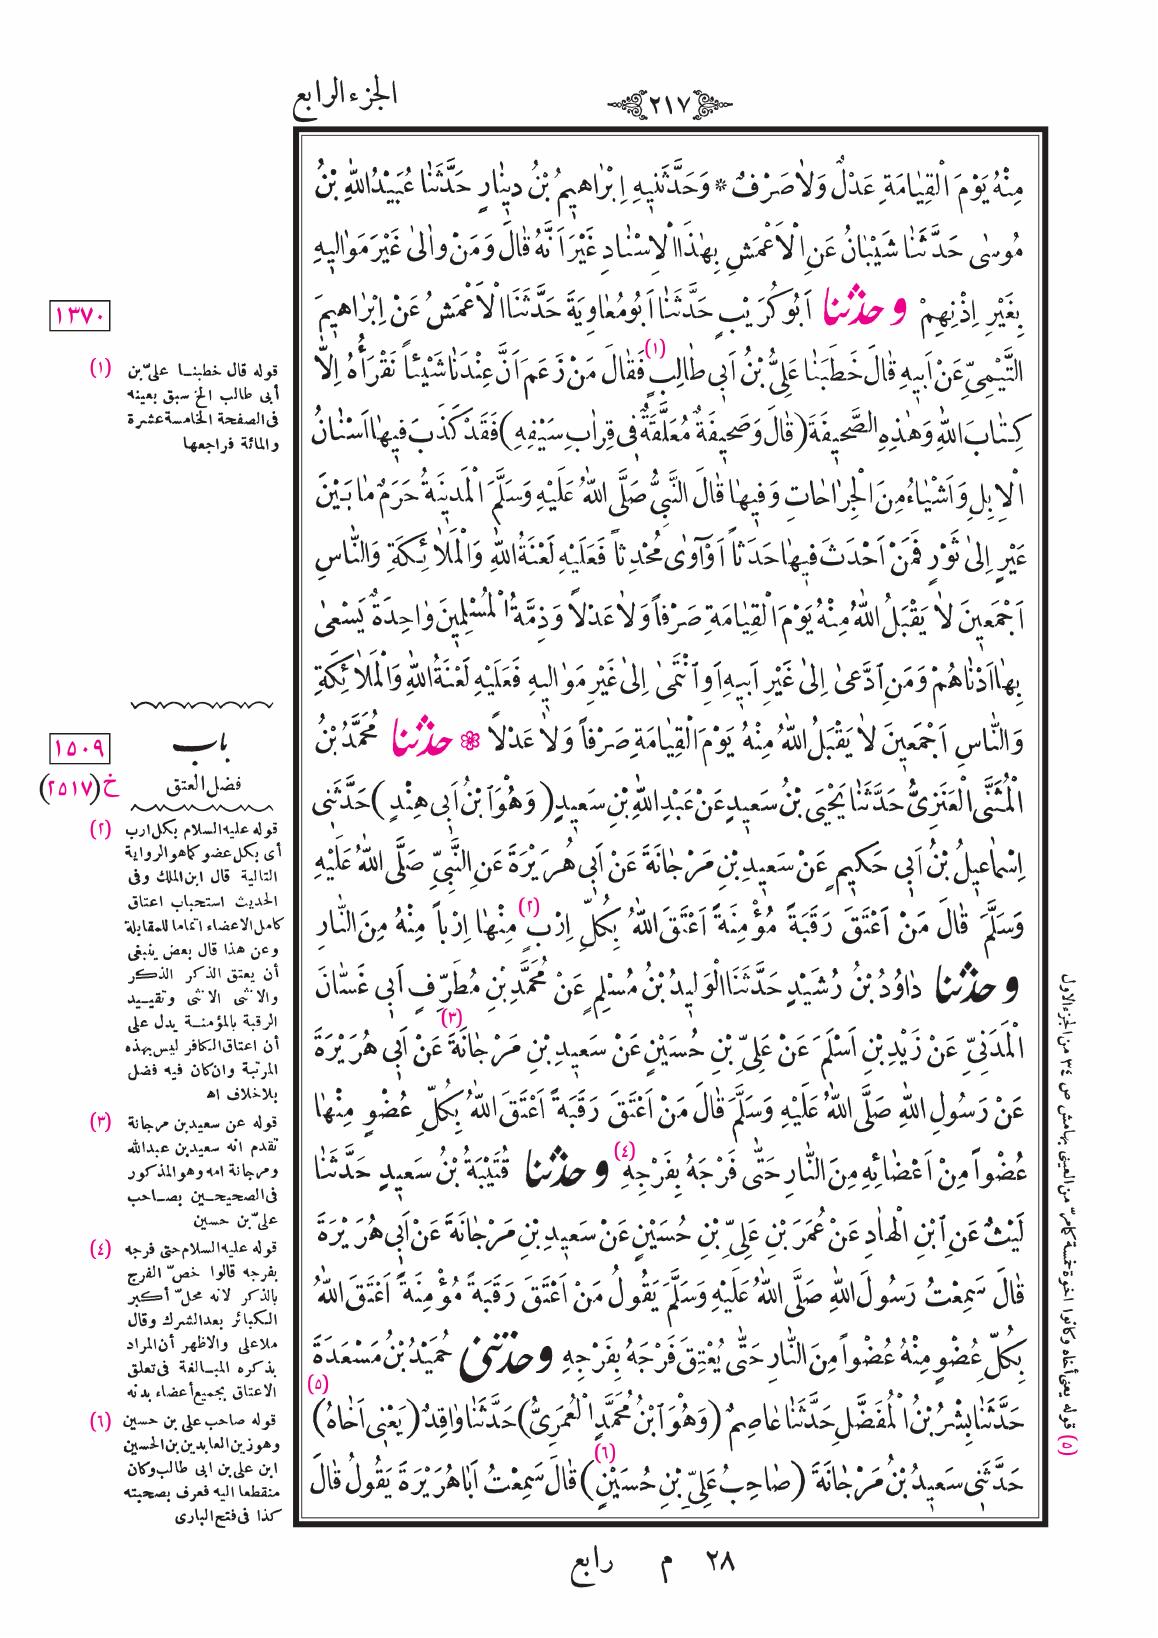 الجزء الرابع
٢١٧
مِنْهُ يَوْمَ الْقِيَامَةِ عَدْلٌ وَلَا صَرْفٌ * وَحَدَّثَنِيهِ اِبْرَاهِيمُ بْنُ دِينَارٍ حَدَّثَنَا عُبَيْدُ اللّٰهِ بْنُ
مُوسٰى حَدَّثَنَا شَيْبَانُ عَنِ الْاَعْمَشِ بِهٰذَا الْاِسْنَادِ غَيْرَ اَنَّهُ قَالَ وَمَنْ وَالٰى غَيْرَ مَوَالِيهِ
بِغَيْرِ اِذْنِهِمْ وحدثنا اَبُو كُرَيْبٍ حَدَّثَنَا اَبُو مُعَاوِيَةَ حَدَّثَنَا الْاَعْمَشُ عَنْ اِبْرَاهِيمَ
التَّيْمِيِّ عَنْ اَبِيهِ قَالَ خَطَبَنَا عَلِيُّ بْنُ اَبِي طَالِبٍ (١) فَقَالَ مَنْ زَعَمَ اَنَّ عِنْدَنَا شَيْئاً نَقْرَأُهُ اِلَّا
كِتَابَ اللّٰهِ وَهٰذِهِ الصَّحِيفَةَ (قَالَ وَصَحِيفَةٌ مُعَلَّقَةٌ فِي قِرَابِ سَيْفِهِ) فَقَدْ كَذَبَ فِيهَا اَسْنَانُ
الْاِبِلِ وَاَشْيَاءُ مِنَ الْجِرَاحَاتِ وَفِيهَا قَالَ النَّبِيُّ صَلَّى اللّٰهُ عَلَيْهِ وَسَلَّمَ الْمَدِينَةُ حَرَمٌ مَا بَيْنَ
عَيْرٍ اِلٰى ثَوْرٍ فَمَنْ اَحْدَثَ فِيهَا حَدَثاً اَوْ آوٰى مُحْدِثاً فَعَلَيْهِ لَعْنَةُ اللّٰهِ وَالْمَلَائِكَةِ وَالنَّاسِ
اَجْمَعِينَ لَا يَقْبَلُ اللّٰهُ مِنْهُ يَوْمَ الْقِيَامَةِ صَرْفاً وَلَا عَدْلاً وَذِمَّةُ الْمُسْلِمِينَ وَاحِدَةٌ يَسْعٰى
بِهَا اَدْنَاهُمْ وَمَنِ ادَّعٰى اِلٰى غَيْرِ اَبِيهِ اَوِ انْتَمٰى اِلٰى غَيْرِ مَوَالِيهِ فَعَلَيْهِ لَعْنَةُ اللّٰهِ وَالْمَلَائِكَةِ
وَالنَّاسِ اَجْمَعِينَ لَا يَقْبَلُ اللّٰهُ مِنْهُ يَوْمَ الْقِيَامَةِ صَرْفاً وَلَا عَدْلاً حدثنا مُحَمَّدُ بْنُ
الْمُثَنَّى الْعَنَزِيُّ حَدَّثَنَا يَحْيَى بْنُ سَعِيدٍ عَنْ عَبْدِ اللّٰهِ بْنِ سَعِيدٍ (وَهُوَ ابْنُ اَبِي هِنْدٍ) حَدَّثَنِي
اِسْمَاعِيلُ بْنُ اَبِي حَكِيمٍ عَنْ سَعِيدِ بْنِ مَرْجَانَةَ عَنْ اَبِي هُرَيْرَةَ عَنِ النَّبِيِّ صَلَّى اللّٰهُ عَلَيْهِ
وَسَلَّمَ قَالَ مَنْ اَعْتَقَ رَقَبَةً مُؤْمِنَةً اَعْتَقَ اللّٰهُ بِكُلِّ اِرْبٍ (٢) مِنْهَا اِرْباً مِنْهُ مِنَ النَّارِ
وحدثنا دَاوُدُ بْنُ رُشَيْدٍ حَدَّثَنَا الْوَلِيدُ بْنُ مُسْلِمٍ عَنْ مُحَمَّدِ بْنِ مُطَرِّفٍ اَبِي غَسَّانَ
الْمَدَنِيِّ عَنْ زَيْدِ بْنِ اَسْلَمَ عَنْ عَلِيِّ بْنِ حُسَيْنٍ عَنْ سَعِيدِ بْنِ مَرْجَانَةَ (٣) عَنْ اَبِي هُرَيْرَةَ
عَنْ رَسُولِ اللّٰهِ صَلَّى اللّٰهُ عَلَيْهِ وَسَلَّمَ قَالَ مَنْ اَعْتَقَ رَقَبَةً اَعْتَقَ اللّٰهُ بِكُلِّ عُضْوٍ مِنْهَا
عُضْواً مِنْ اَعْضَائِهِ مِنَ النَّارِ حَتَّى فَرْجَهُ بِفَرْجِهِ (٤) وحدثنا قُتَيْبَةُ بْنُ سَعِيدٍ حَدَّثَنَا
لَيْثٌ عَنِ ابْنِ الْهَادِ عَنْ عُمَرَ بْنِ عَلِيِّ بْنِ حُسَيْنٍ عَنْ سَعِيدِ بْنِ مَرْجَانَةَ عَنْ اَبِي هُرَيْرَةَ
قَالَ سَمِعْتُ رَسُولَ اللّٰهِ صَلَّى اللّٰهُ عَلَيْهِ وَسَلَّمَ يَقُولُ مَنْ اَعْتَقَ رَقَبَةً مُؤْمِنَةً اَعْتَقَ اللّٰهُ
بِكُلِّ عُضْوٍ مِنْهُ عُضْواً مِنَ النَّارِ حَتَّى يُعْتِقَ فَرْجَهُ بِفَرْجِهِ وحدثنى حُمَيْدُ بْنُ مَسْعَدَةَ
حَدَّثَنَا بِشْرُ بْنُ الْمُفَضَّلِ حَدَّثَنَا عَاصِمٌ (وَهُوَ ابْنُ مُحَمَّدٍ الْعُمَرِيُّ) حَدَّثَنَا وَاقِدٌ (يَعْنِي اَخَاهُ) (٥)
حَدَّثَنِي سَعِيدُ بْنُ مَرْجَانَةَ (صَاحِبُ عَلِيِّ بْنِ حُسَيْنٍ) (٦) قَالَ سَمِعْتُ اَبَا هُرَيْرَةَ يَقُولُ قَالَ
١٣٧٠
(١) قوله قال خطبنا علىّ بن
أبى طالب الخ سبق بعينه
فى الصفحة الخامسة عشرة
والمائة فراجعها
باب
فضل العتق
١٥٠٩
خ (٢٥١٧)
(٢) قوله عليه السلام بكل ارب
أى بكل عضو كما هو الرواية
التالية قال ابن الملك وفى
الحديث استحباب اعتاق
كامل الاعضاء اتماما للمقابلة
وعن هذا قال بعض ينبغى
أن يعتق الذكر الذكر
والانثى الانثى وتقييد
الرقبة بالمؤمنة يدل على
أن اعتاق الكافر ليس بهذه
المرتبة وان كان فيه فضل
بلا خلاف اه
(٣) قوله عن سعيد بن مرجانة
تقدم انه سعيد بن عبدالله
ومرجانة امه وهو المذكور
فى الصحيحين بصاحب
علىّ بن حسين
(٤) قوله عليه السلام حتى فرجه
بفرجه قالوا خصّ الفرج
بالذكر لانه محلّ أكبر
الكبائر بعد الشرك وقال
ملا على والاظهر أن المراد
بذكره المبالغة فى تعلق
الاعتاق بجميع أعضاء بدنه
(٦) قوله صاحب على بن حسين
وهو زين العابدين بن الحسين
ابن على بن ابى طالب وكان
منقطعا اليه فعرف بصحبته
كذا فى فتح البارى
(٥) قوله يعنى أخاه وكانوا اخوة خمسة كما مرّ من العينى بهامش ص ٣٤ من الجزء الاول
٢٨ م رابع